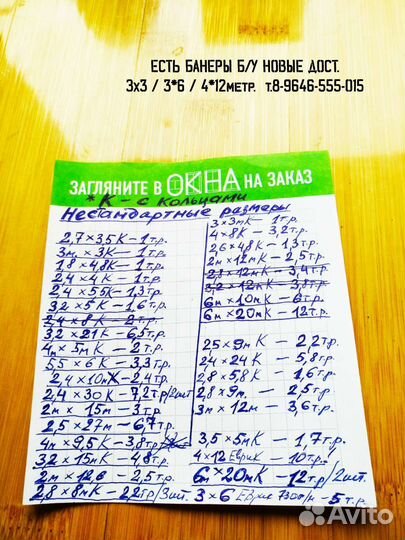 ЕСТЬ БАНЕРЫ Б/У НОВЫЕ ДОСТ.
3х3 / 3*6 / 4*12метр. т.8-9646-555-015
ЗАГЛЯНИТЕ В ОКНА НА ЗАКАЗ
*К - с кольцами
Нестандартные размеры
2,7 х 3,5К - 1т.р.
3м х 3К - 1т.р.
1,8 х 4,8К - 1т.р.
2,4 х 4К - 1т.р.
2,4 х 5,5К - 1,3т.р.
3,2 х 5К - 1,6т.р.
2,4 х 8К - 2т.р.
3,2 х 21К - 6,5т.р.
4м х 5мК - 2т.р.
5,5 х 6К - 3,3т.р.
2,4 х 10мК - 2,4т.р.
2,4 х 30К - 7,2т.р/2шт
2м х 15м - 3т.р.
2,5 х 27м - 6,7т.р.
4м х 9,5К - 3,8т.р/
3,2 х 15мК - 4,8т.р.
2м х 12,6 - 2,5т.р.
2,8 х 8мК - 2,2тр/3шт.
3 х 3мК - 1т.р.
4 х 8К - 3,2т.р.
2,6 х 4,8К - 1,3т.р.
2м х 12мК - 2,5т.р.
2,8 х 12мК - 3,4т.р.
3,2 х 12мК - 3,8т.р.
6м х 10мК - 6т.р.
6м х 20мК - 12т.р.
2,5 х 9мК - 2,2т.р.
2,4 х 24К - 5,8т.р.
2,8 х 5,8К - 1,6т.р.
2,8 х 9м. - 2,5т.р.
3м х 12м - 3,6т.р.
3,5 х 5мК - 1,7т.р.
4 х 12 ЕвриК - 10т.р.
6м х 20мК - 12тр/2шт.
3 х 6 Евро - 5т.р.
Avito